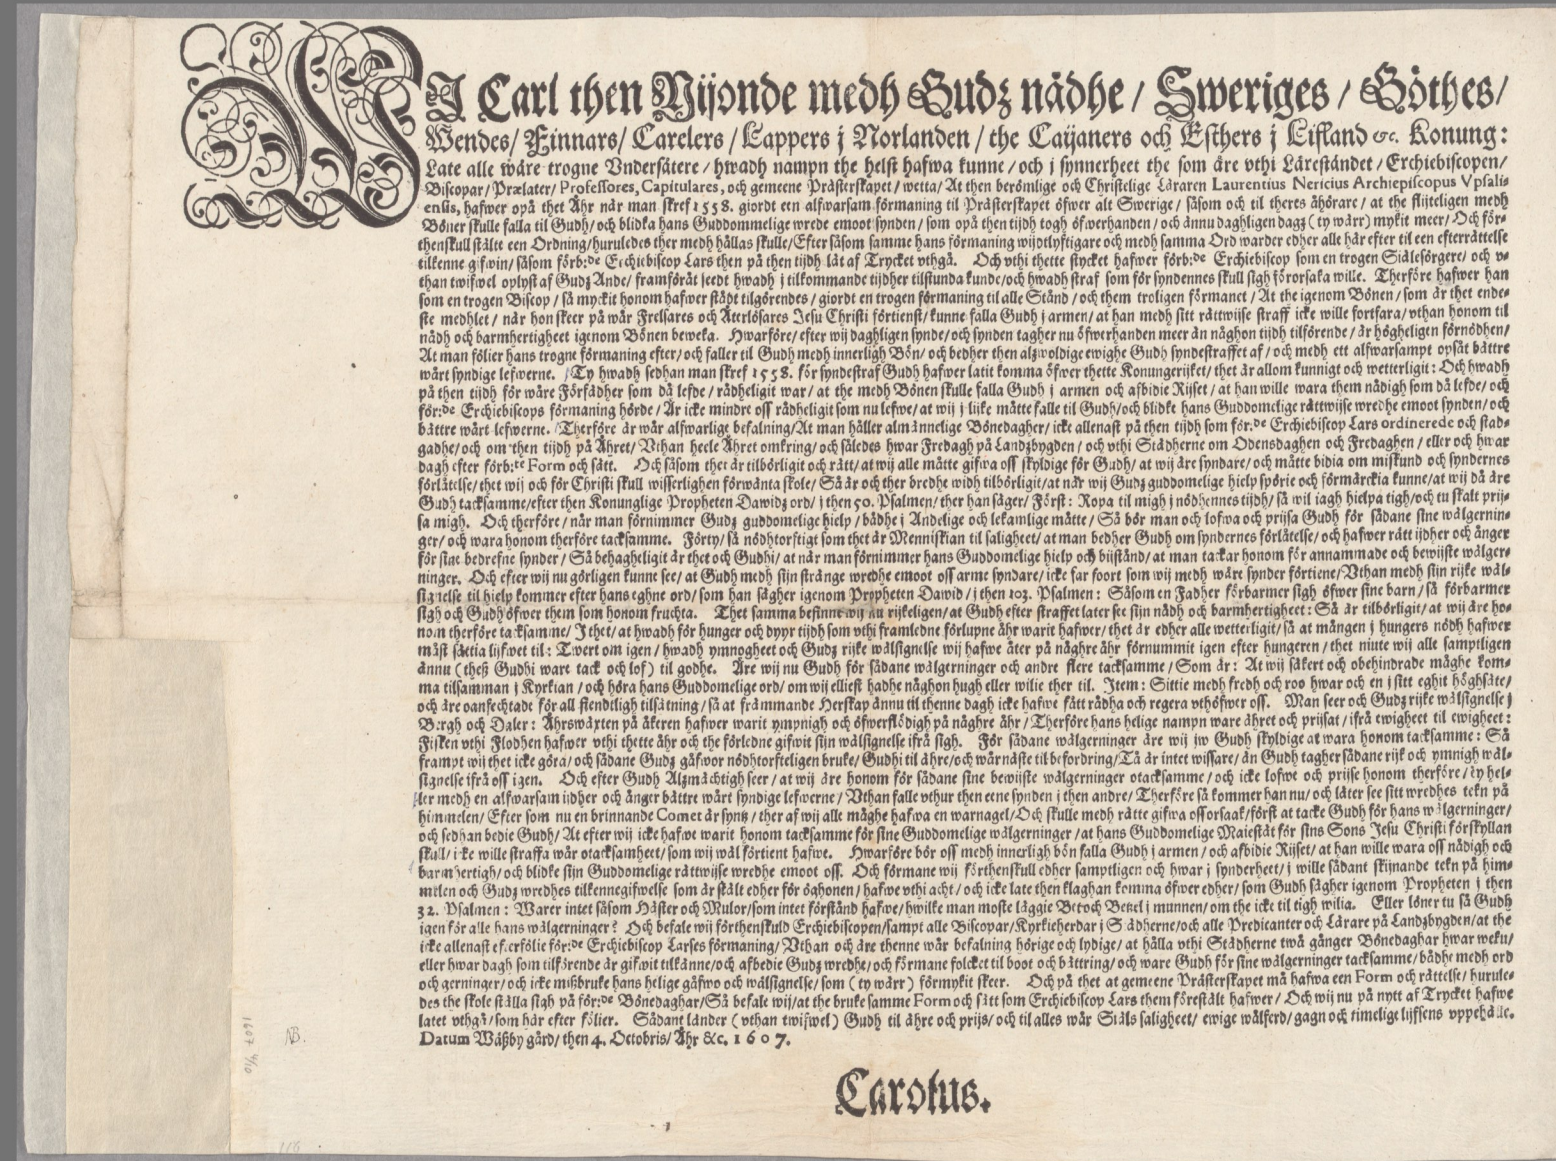 WJ Carl then Nijonde medh Gudz nådhe / Sweriges / Göthes /
Wendes / Finnars / Carelers / Lappers j Norlanden / the Caijaners och Esthers j Lifland &c. Konung:
Late alle wåre trogne Vndersåtere / hwadh nampn the helst hafwa kunne / och j synnerheet the som äre vthi Läreståndet / Erchiebiscopen /
Biscopar / Prælater / Professores, Capitulares, och gemeene Prästerskapet / wetta / At then berömlige och Christelige Läraren Laurentius Nericius Archiepiscopus Vpsali-
ensis, hafwer opå thet Åhr när man skref 1558. giordt een alfwarsam förmaning til Prästerskapet öfwer alt Swerige / såsom och til theres åhörare / at the flijteligen medh
Böner skulle falla til Gudh / och blidka hans Guddommelige wrede emoot synden / som opå then tijdh togh öfwerhanden / och ännu daghligen dagz (ty wärr) mykit meer / Och för-
thenskull stålte een Ordning / huruledes ther medh hållas skulle / Efter såsom samme hans förmaning wijdtlyftigare och medh samma Ord warder edher alle här efter til een efterrättelse
tilkenne gifwin / såsom förb:de Erchiebiscop Lars then på then tijdh lät af Trycket vthgå. Och vthi thette stycket hafwer förb:de Erchiebiscop som en trogen Siälesörgere / och v-
than twifwel oplyst af Gudz Ande / framföråt seedt hwadh j tilkommande tijdher tilstunda kunde / och hwadh straf som för syndennes skull sigh förorsaka wille. Therföre hafwer han
som en trogen Biscop / så myckit honom hafwer stådt tilgörendes / giordt en trogen förmaning til alle Stånd / och them troligen förmanet / At the igenom Bönen / som är thet ende-
ste medhlet / när hon skeer på wår Frelsares och Återlösares Jesu Christi förtienst / kunne falla Gudh j armen / at han medh sitt rättwijse straff icke wille fortfara / vthan honom til
nådh och barmhertigheet igenom Bönen beweka. Hwarföre / efter wij daghligen synde / och synden tagher nu öfwerhanden meer än någhon tijdh tilförende / är högheligen förnödhen /
At man fölier hans trogne förmaning efter / och faller til Gudh medh innerligh Bön / och bedher then alzwoldige ewighe Gudh syndestraffet af / och medh ett alfwarsampt opsåt bättre
wårt syndige lefwerne. Ty hwadh sedhan man skref 1558. för syndestraf Gudh hafwer latit komma öfwer thette Konungerijket / thet är allom kunnigt och wetterligit: Och hwadh
på then tijdh för wåre Förfädher som då lefde / rådheligit war / at the medh Bönen skulle falla Gudh j armen och afbidie Rijset / at han wille wara them nådigh som då lefde / och
för:de Erchiebiscops förmaning hörde / Är icke mindre oss rådheligit som nu lefwe / at wij j lijke måtte falle til Gudh / och blidke hans Guddomelige rättwijse wredhe emoot synden / och
bättre wårt lefwerne. Therföre är wår alfwarlige befalning / At man håller almännelige Bönedagher / icke allenast på then tijdh som för:de Erchiebiscop Lars ordinerede och stad-
gadhe / och om then tijdh på Åhret / Vthan heele Åhret omkring / och således hwar Fredagh på Landzbygden / och vthi Städherne om Odensdaghen och Fredaghen / eller och hwar
dagh efter förb:te Form och sätt. Och såsom thet är tilbörligit och rätt / at wij alle måtte gifwa oss skyldige för Gudh / at wij äre syndare / och måtte bidia om miskund och syndernes
förlåtelse / thet wij och för Christi skull wisserlighen förwänta skole / Så är och ther bredhe widh tilbörligit / at når wij Gudz guddomelige hielp spörie och förmärckia kunne / at wij då äre
Gudh tacksamme / efter then Konunglige Propheten Dawidz ord / j then 50. Psalmen / ther han säger / Först: Ropa til migh j nödhennes tijdh / så wil iagh hielpa tigh / och tu skalt prij-
sa migh. Och therföre / när man förnimmer Gudz guddomelige hielp / bådhe j Andelige och lekamlige måtte / Så bör man och lofwa och prijsa Gudh för sådane sine wälgernin-
ger / och wara honom therföre tacksamme. Förty / så nödhtorftigt som thet är Menniskian til saligheet / at man bedher Gudh om syndernes förlåtelse / och hafwer rätt ijdher och ånger
för sine bedrefne synder / Så behagheligit är thet och Gudhi / at när man förnimmer hans Guddomelige hielp och bijstånd / at man tackar honom för annammade och bewijste wälger-
ninger. Och efter wij nu görligen kunne see / at Gudh medh sijn stränge wredhe emoot oss arme syndare / icke far foort som wij medh wåre synder förtiene / Vthan medh sijn rijke wäl-
signelse til hielp kommer efter hans eghne ord / som han sägher igenom Propheten Dawid / j then 103. Psalmen: Såsom en Fadher förbarmer sigh öfwer sine barn / så förbarmer
sigh och Gudh öfwer them som honom fruchta. Thet samma besinne wij nu rijkeligen / at Gudh efter straffet later see sijn nådh och barmhertigheet: Så är tilbörligit / at wij äre ho-
nom therföre tacksamme / J thet / at hwadh för hunger och dyyr tijdh som vthi framledne förlupne åhr warit hafwer / thet är edher alle wetterligit / så at mången j hungers nödh hafwer
måst sättia lijfwet til: Twert om igen / hwadh ymnogheet och Gudz rijke wälsignelse wij hafwe åter på någhre åhr förnummit igen efter hungeren / thet niute wij alle samptligen
ännu (theß Gudhi ware tack och lof) til godhe. Äre wij nu Gudh för sådane wälgerninger och andre flere tacksamme / Som är: At wij säkert och obehindrade måghe kom-
ma tilsamman j Kyrkian / och höra hans Guddomelige ord / om wij elliest hadhe någhon hugh eller wilie ther til. Jtem: Sittie medh fredh och roo hwar och en j sitt eghit höghsäte /
och äre oanfechtade för all fiendtligh tilsätning / så at främmande Herskap ännu til thenne dagh icke hafwe fått rådha och regera vthöfwer oss. Man seer och Gudz rijke wälsignelse j
Bergh och Daler: Åhrswäxten på åkeren hafwer warit ymynigh och öfwerflödigh på någhre åhr / Therföre hans helige nampn ware ähret och prijsat / ifrå ewigheet til ewigheet:
Fisken vthi Flodhen hafwer vthi thette åhr och the förledne gifwit sijn wälsignelse ifrå sigh. För sådane wälgerninger äre wij jw Gudh skyldige at wara honom tacksamme: Så
frampt wij thet icke göra / och sådane Gudz gåfwor nödhtorfteligen bruke / Gudhi til ähre / och wår näste til befordring / Tå är intet wissare / än Gudh tagher sådane rijk och ymnigh wäl-
signelse ifrå oss igen. Och efter Gudh Alzmächtigh seer / at wij äre honom för sådane sine bewijste wälgerninger otacksamme / och icke lofwe och prijse honom therföre / ey hel-
ler medh en alfwarsam ijdher och ånger bättre wårt syndige lefwerne / Vthan falle vthur then eene synden j then andre / Therföre så kommer han nu / och låter see sitt wredhes tekn på
himmelen / Efter som nu en brinnande Comet är syntz / ther af wij alle måghe hafwa en warnagel / Och skulle medh rätte gifwa oss orsaak / först at tacke Gudh för hans wälgerninger /
och sedhan bedie Gudh / At efter wij icke hafwe warit honom tacksamme för sine Guddomelige wälgerninger / at hans Guddomelige Maiestät för sins Sons Jesu Christi förskyllan
skull / icke wille straffa wår otacksamheet / som wij wäl förtient hafwe. Hwarföre bör oss medh innerligh bön falla Gudh j armen / och afbidie Rijset / at han wille wara oss nådigh och
barmhertigh / och blidke sijn Guddomelige rättwijse wredhe emoot oss. Och förmane wij förthenskull edher samptligen och hwar j synderheet / j wille sådant skijnande tekn på him-
melen och Gudz wredhes tilkennegifwelse som är stält edher för öghonen / hafwe vthi acht / och icke late then klaghan komma öfwer edher / som Gudh sägher igenom Propheten j then
32. Psalmen: Warer intet såsom Häster och Mulor / som intet förstånd hafwe / hwilke man moste läggie Bet och Betzel j munnen / om the icke til tigh wilia. Eller löner tu så Gudh
igen för alle hans wälgerninger? Och befale wij förthenskuld Erchiebiscopen / sampt alle Biscopar / Kyrkieherdar j Städherne / och alle Predicanter och Lärare på Landzbygden / at the
icke allenast efterfölie för:de Erchiebiscop Larses förmaning / Vthan och äre thenne wår befalning hörige och lydige / at hålla vthi Städherne twå gånger Bönedaghar hwar weku /
eller hwar dagh som tilförende är gifwit tilkänne / och afbedie Gudz wredhe / och förmane folcket til boot och bättring / och ware Gudh för sine wälgerninger tacksamme / bådhe medh ord
och gerninger / och icke mißbruke hans helige gåfwo och wälsignelse / som (ty wärr) förmykit skeer. Och på thet at gemeene Prästerskapet må hafwa een Form och rättelse / hurule-
des the skole ställa sigh på för:de Bönedaghar / Så befale wij / at the bruke samme Form och sätt som Erchiebiscop Lars them förestält hafwer / Och wij nu på nytt af Trycket hafwe
latet vthgå / som här efter fölier. Sådant länder (vthan twifwel) Gudh til ähre och prijs / och til alles wår Siäls saligheet / ewige wälferd / gagn och timelige lijfsens vppehälle.
Datum Wäßby gård / then 4. Octobris / Åhr &c. 1607.
Carolus.
NB.
1607 4/10
116